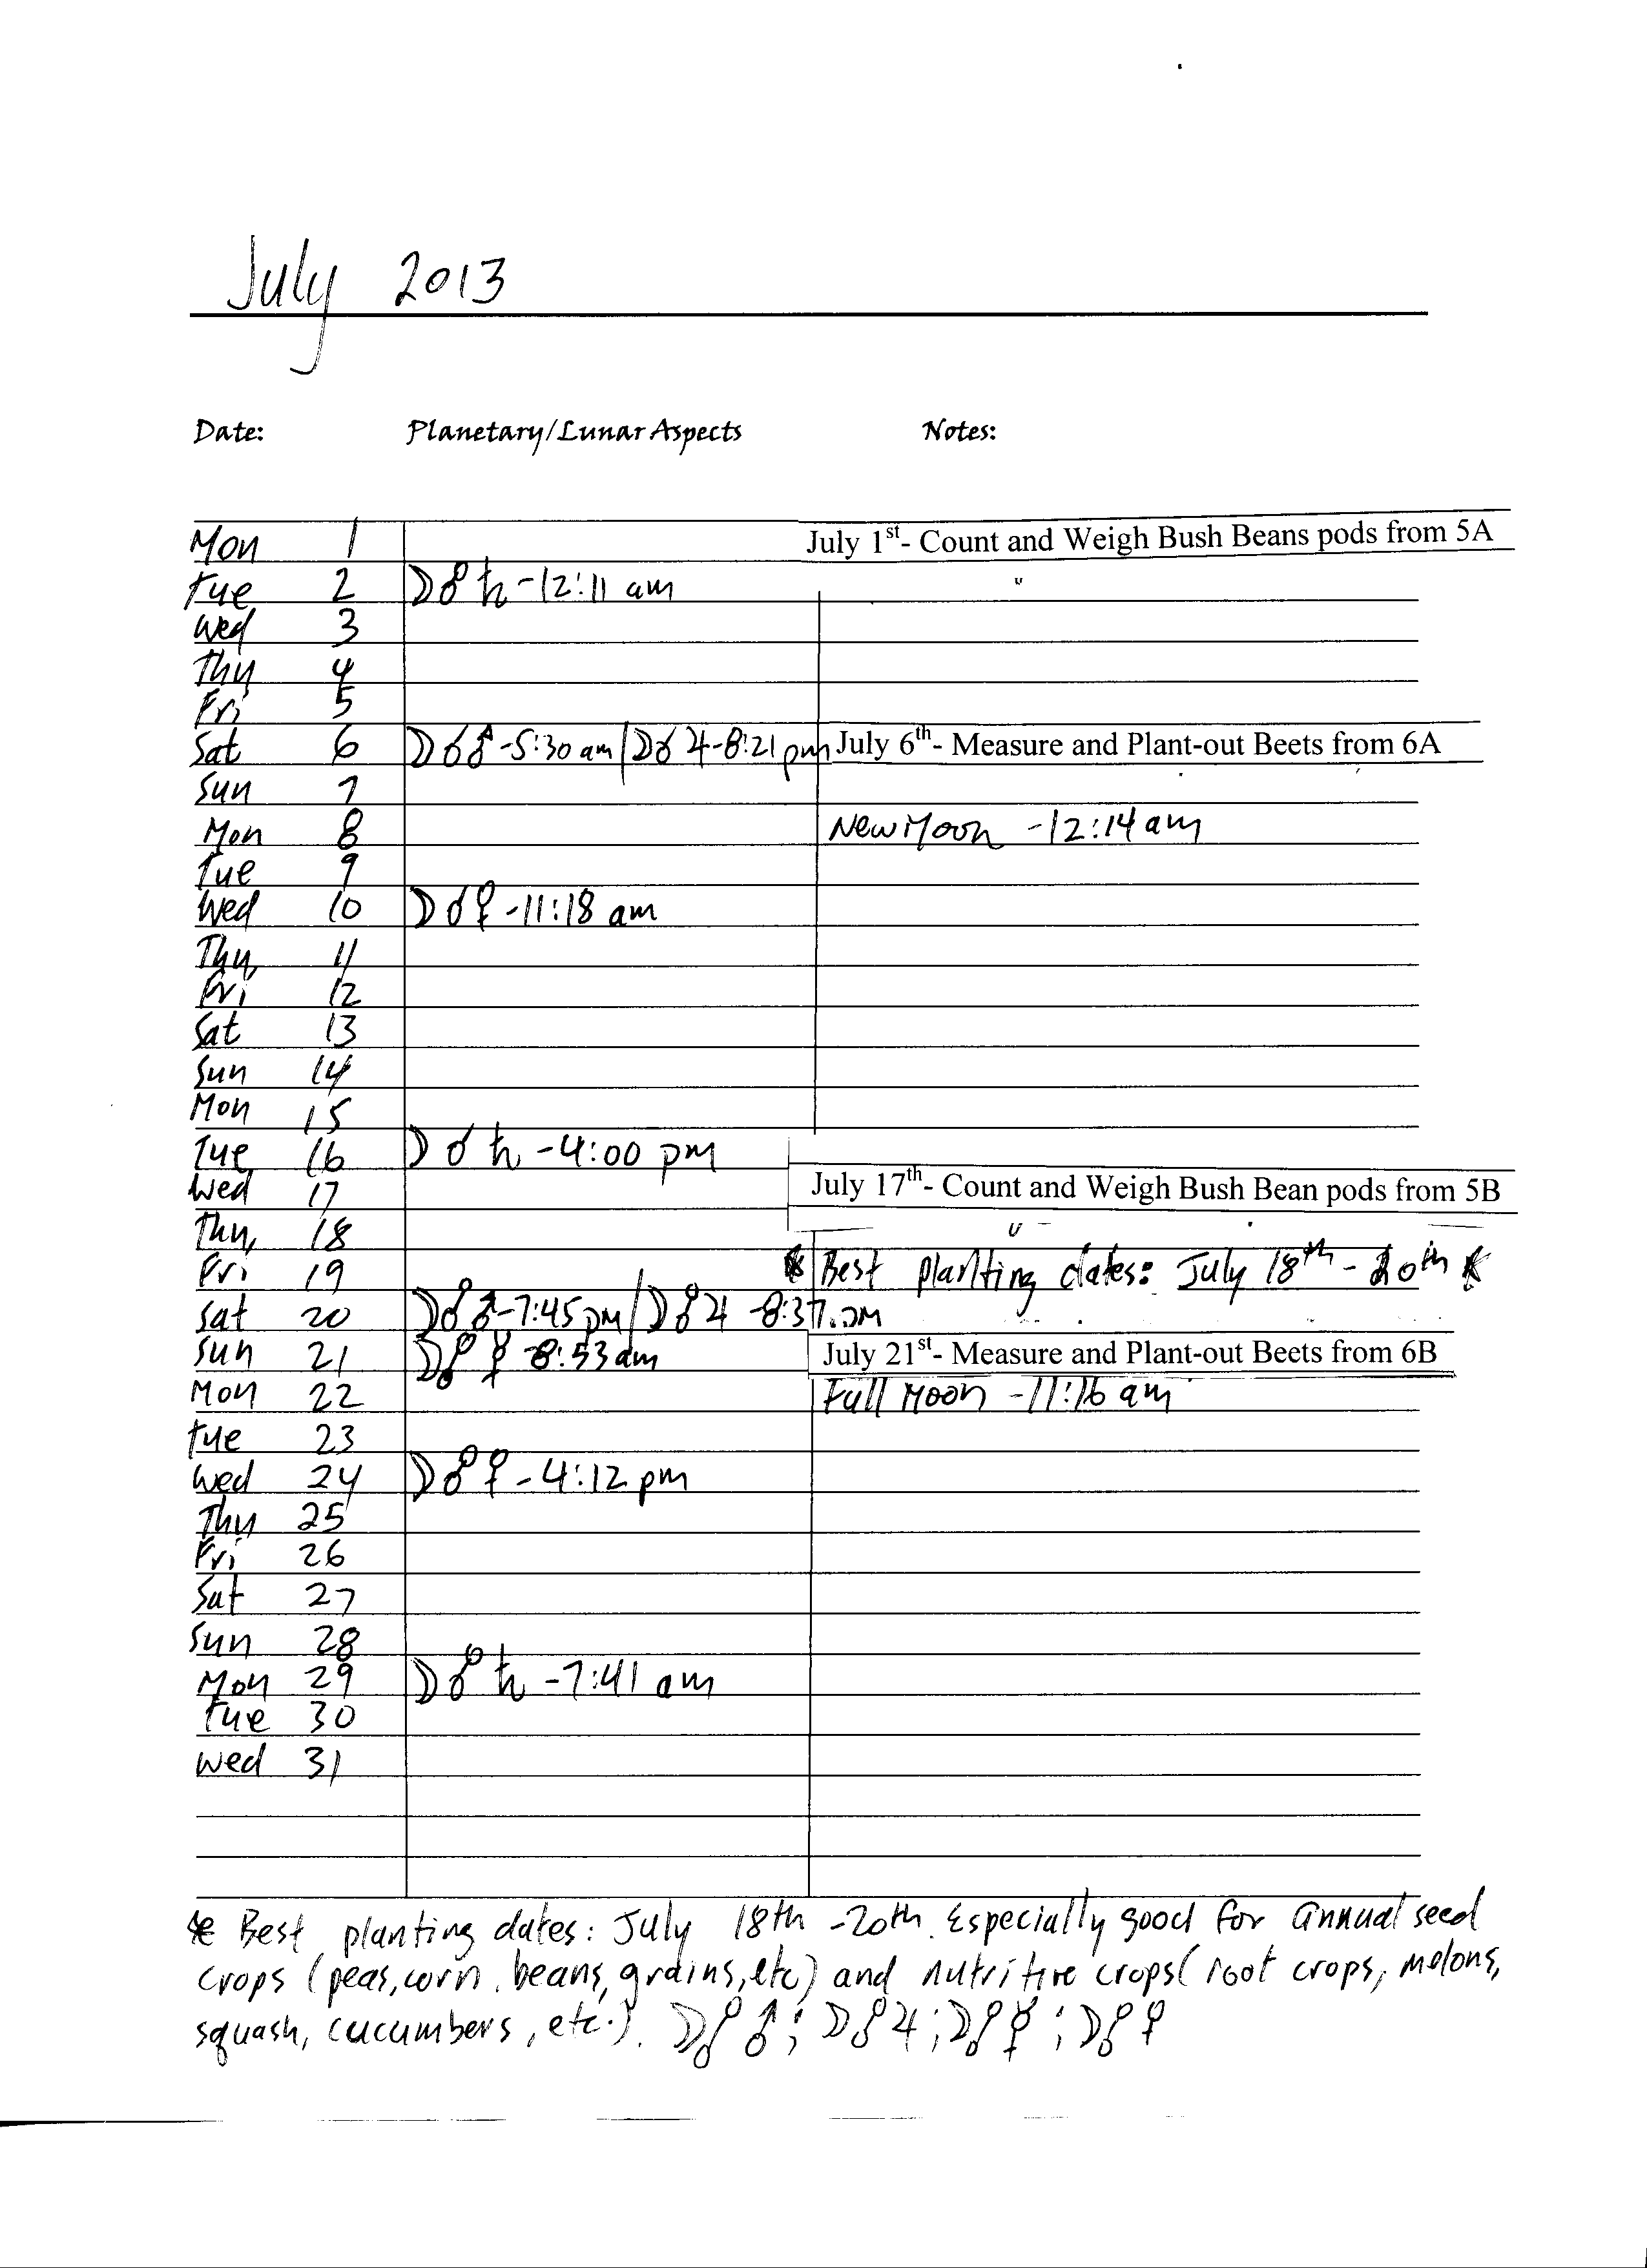 July 2013
Date: Planetary/Lunar Aspects Notes:
Mon 1 July 1st- Count and Weigh Bush Beans pods from 5A
Tue 2 ☽☍♄ -12:11 am "
Wed 3
Thu 4
Fri 5
Sat 6 ☽☌♂ -5:30 am / ☽☌♃ -8:21 pm July 6th- Measure and Plant-out Beets from 6A
Sun 7
Mon 8 New Moon -12:14 am
Tue 9
Wed 10 ☽☌♀ -11:18 am
Thu, 11
Fri 12
Sat 13
Sun 14
Mon 15
Tue 16 ☽☌♄ -4:00 pm
Wed 17 July 17th- Count and Weigh Bush Bean pods from 5B
Thu, 18
Fri 19 * Best planting dates: July 18th - 20th *
Sat 20 ☽☍♂ -7:45 pm / ☽☍♃ -8:37 pm
Sun 21 ☽☍☿ -8:53 am July 21st- Measure and Plant-out Beets from 6B
Mon 22 Full Moon -11:16 am
Tue 23
Wed 24 ☽☍♀ -4:12 pm
Thu 25
Fri 26
Sat 27
Sun 28
Mon 29 ☽☍♄ -7:41 am
Tue 30
Wed 31
* Best planting dates: July 18th -20th. Especially good for annual seed
crops (peas, corn, beans, grains, etc) and nutritive crops( root crops, melons,
squash, cucumbers, etc.). ☽☍♂; ☽☍♃; ☽☍☿; ☽☍♀